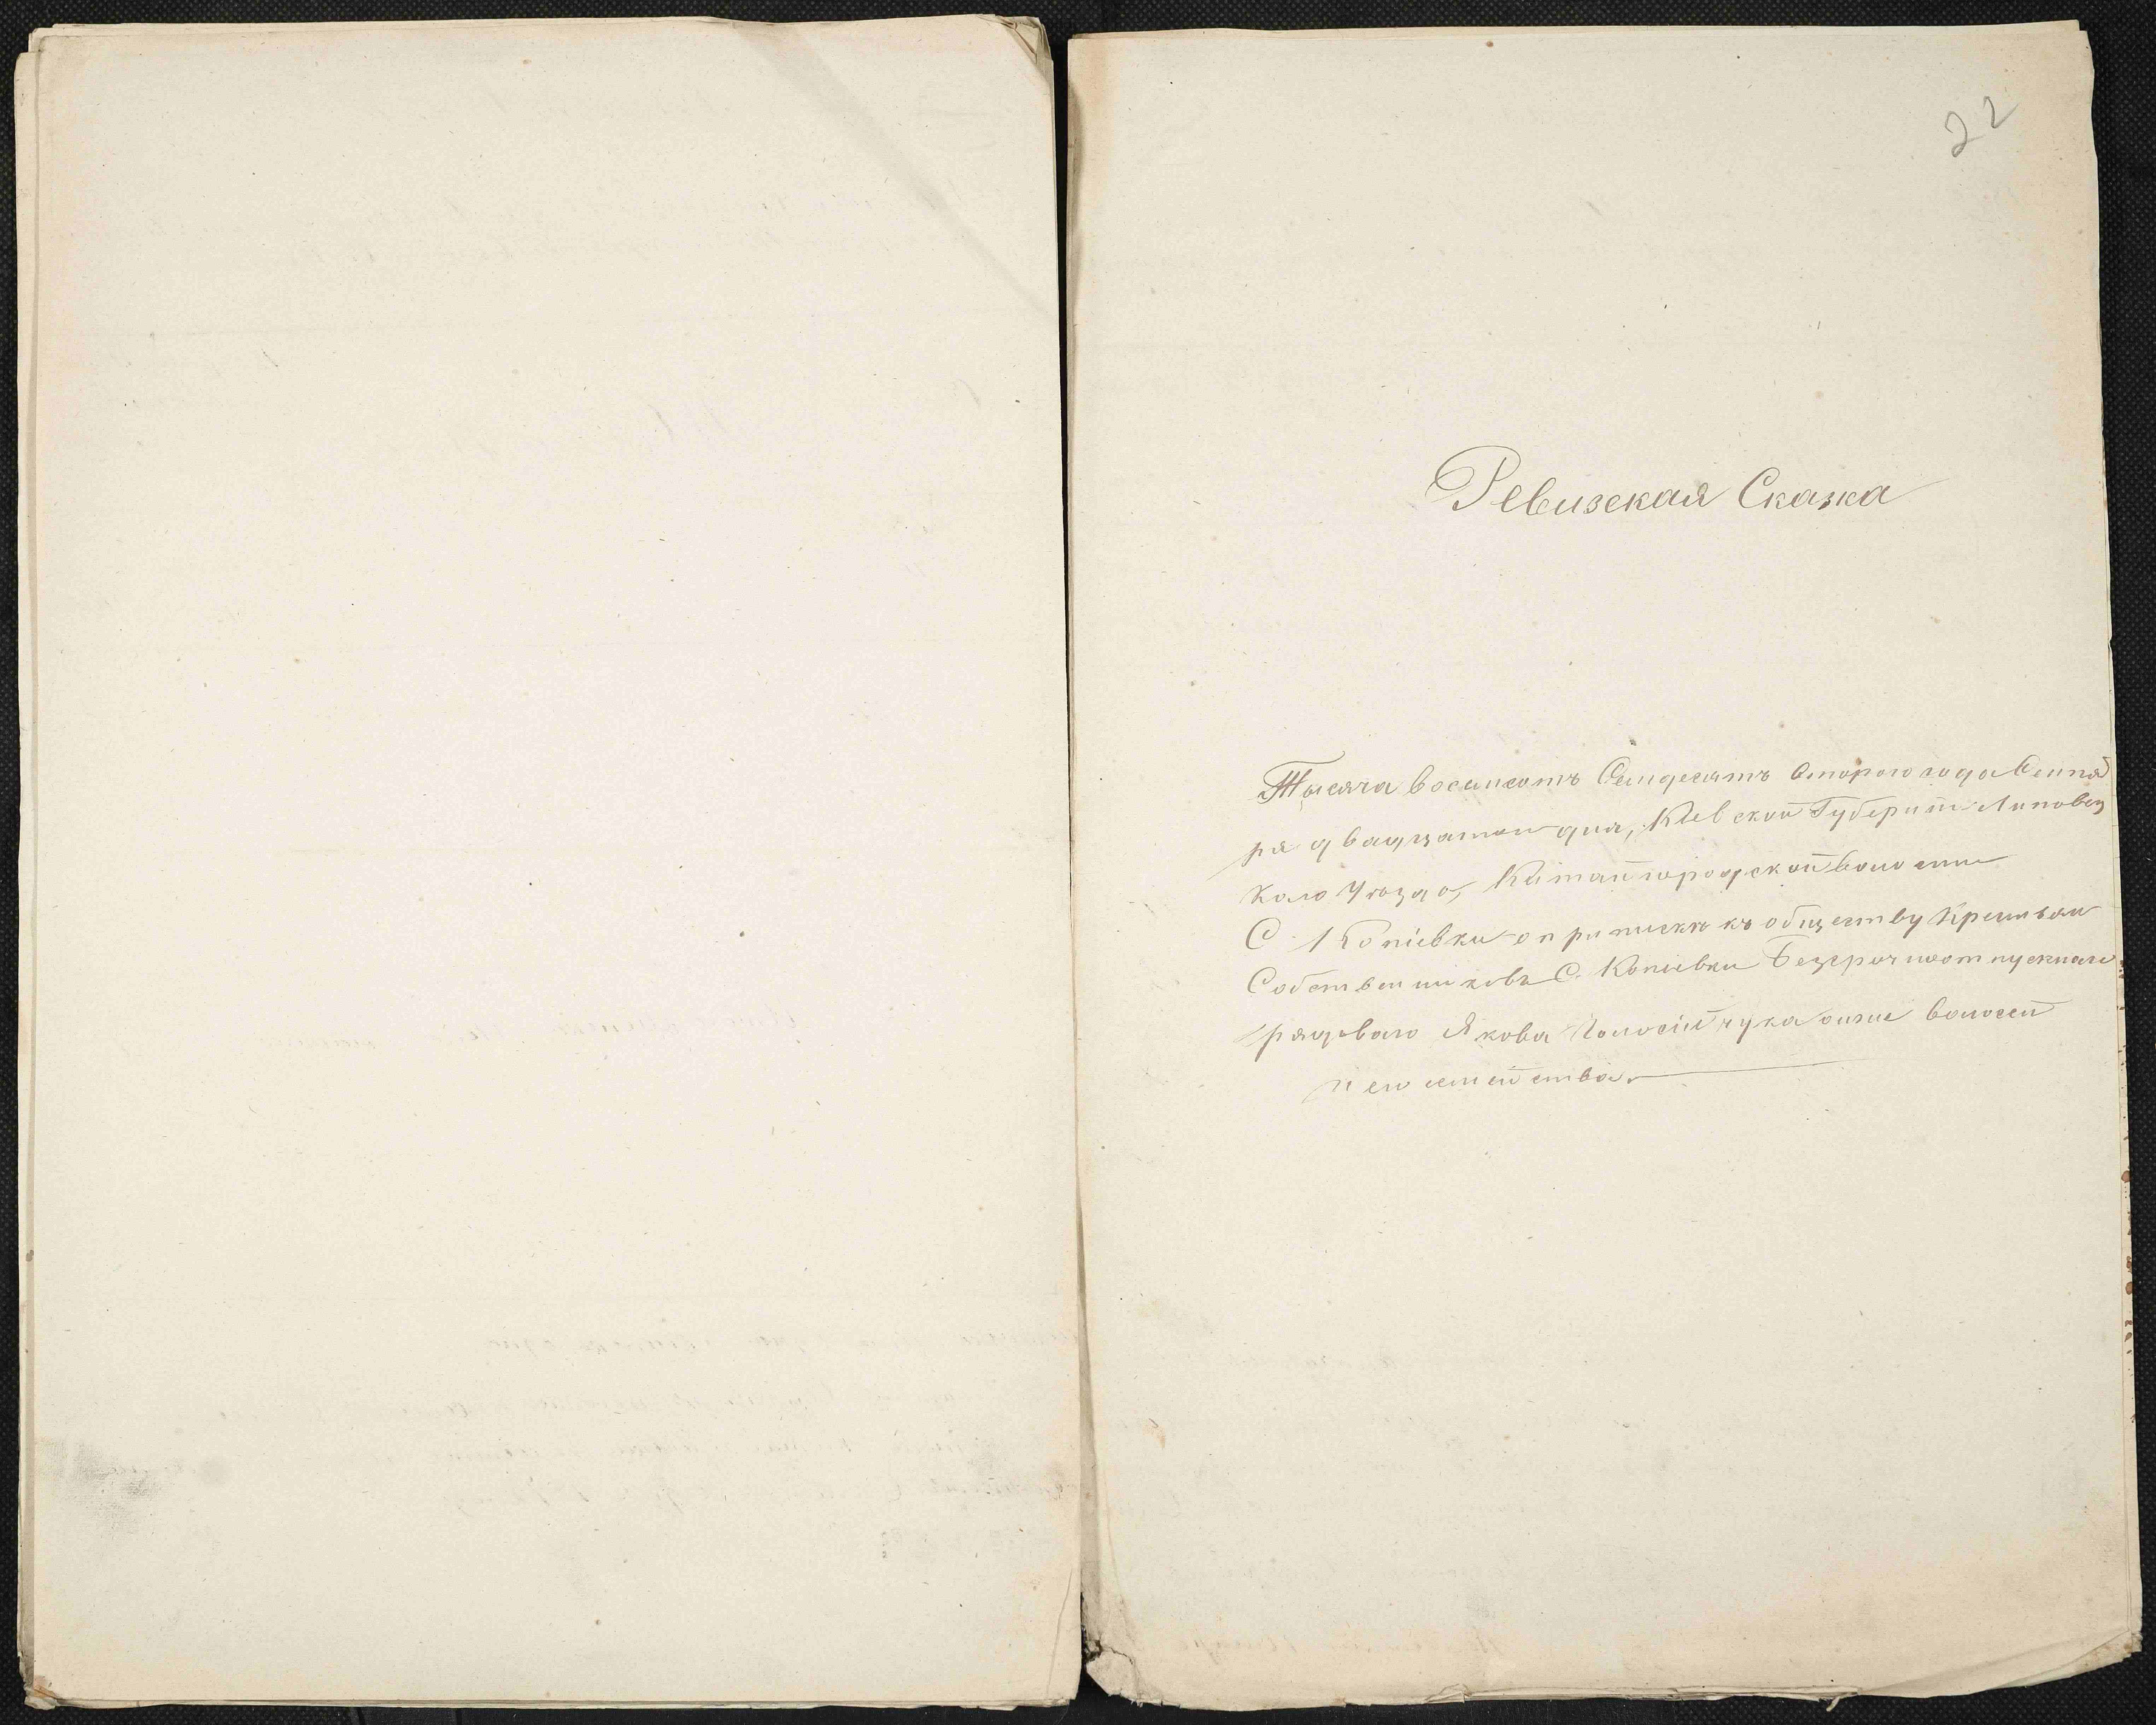 22
Ревизская Сказка
Тысяча восемсотъ Семдесятъ второго года Сентя
ря двадцатого дня, Киевской Губернии Липовец
каго Уѣзда, Китайгородской волости
С. Копіевки о припискѣ къ обществу Крестьян
Собственниковъ С. Копіевки Безсрочноотпускнаго
рядоваго Якова
и его семейства.